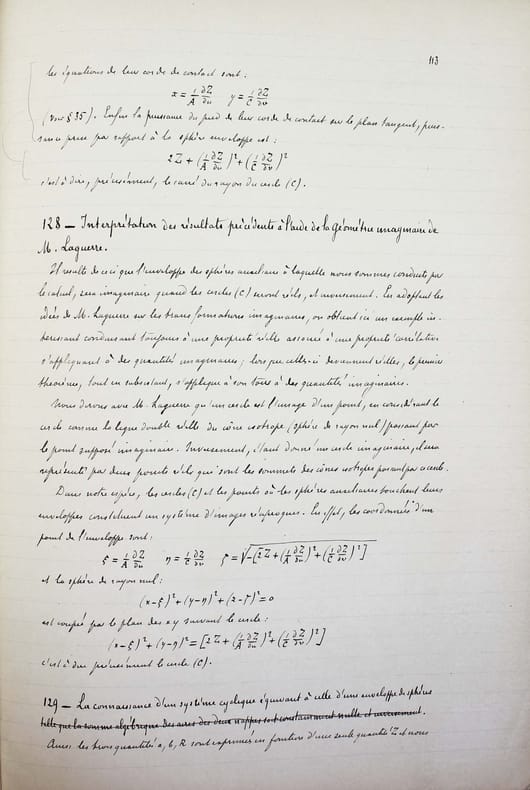 113
les équations de leur corde de contact sont :
x = 1/A ∂Z/∂u   y = 1/C ∂Z/∂v
(voir § 35). Enfin la puissance du pied de leur corde de contact sur le plan tangent, puis-
sance prise par rapport à la sphère enveloppe est :
2Z + (1/A ∂Z/∂u)² + (1/C ∂Z/∂v)²
c'est à dire, précisément, le carré du rayon du cercle (C).
128 — Interprétation des résultats précédents à l'aide de la Géométrie imaginaire de
M. Laguerre.
Il résulte de ceci que l'enveloppe des sphères auxiliaires à laquelle nous sommes conduits par
le calcul, sera imaginaire quand les cercles (C) seront réels, et inversement. En adoptant les
idées de M. Laguerre sur les transformations imaginaires, on obtient ici un exemple in-
téressant conduisant toujours d'une propriété réelle associée à une propriété corrélative
s'appliquant à des quantités imaginaires ; lorsque celles-ci deviennent réelles, le premier
théorème, tout en subsistant, s'applique à son tour à des quantités imaginaires.
Nous dirons avec M. Laguerre qu'un cercle est l'image d'un point, en considérant le
cercle comme la ligne double réelle du cône isotrope (sphère de rayon nul) passant par
le point supposé imaginaire. Inversement, étant donné un cercle imaginaire, il sera
représenté par deux points réels qui sont les sommets des cônes isotropes passant par ce cercle.
Dans notre espèce, les cercles (C) et les points où les sphères auxiliaires touchent leurs
enveloppes constituent un système d'images réciproques. En effet, les coordonnées d'un
point de l'enveloppe sont :
ξ = 1/A ∂Z/∂u   η = 1/C ∂Z/∂v   ζ = √-[2Z + (1/A ∂Z/∂u)² + (1/C ∂Z/∂v)²]
et la sphère de rayon nul :
(x-ξ)² + (y-η)² + (z-ζ)² = 0
est coupée par le plan des xy suivant le cercle :
(x-ξ)² + (y-η)² = [2Z + (1/A ∂Z/∂u)² + (1/C ∂Z/∂v)²]
c'est à dire précisément le cercle (C).
129 — La connaissance d'un système cyclique équivaut à celle d'une enveloppe de sphères
telle que la somme algébrique des aires des deux nappes soit constamment nulle et inversement.
Ainsi les trois quantités a, b, R sont exprimées en fonction d'une seule quantité Z et nous